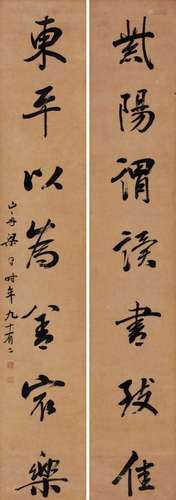 紫陽謂讀書致佳
東平以為善最樂
山舟梁同書時年九十有二